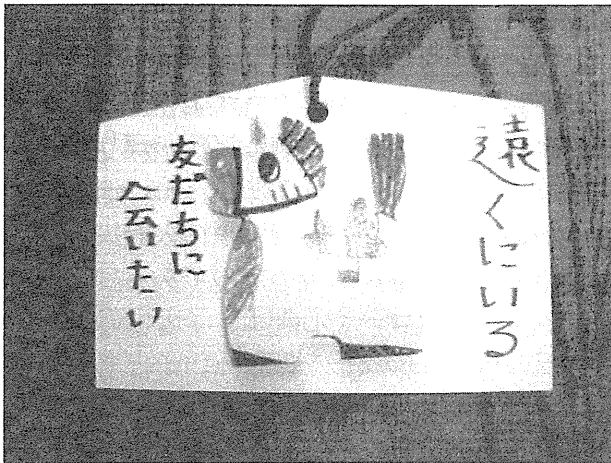 遠くにいる
友だちに
会いたい